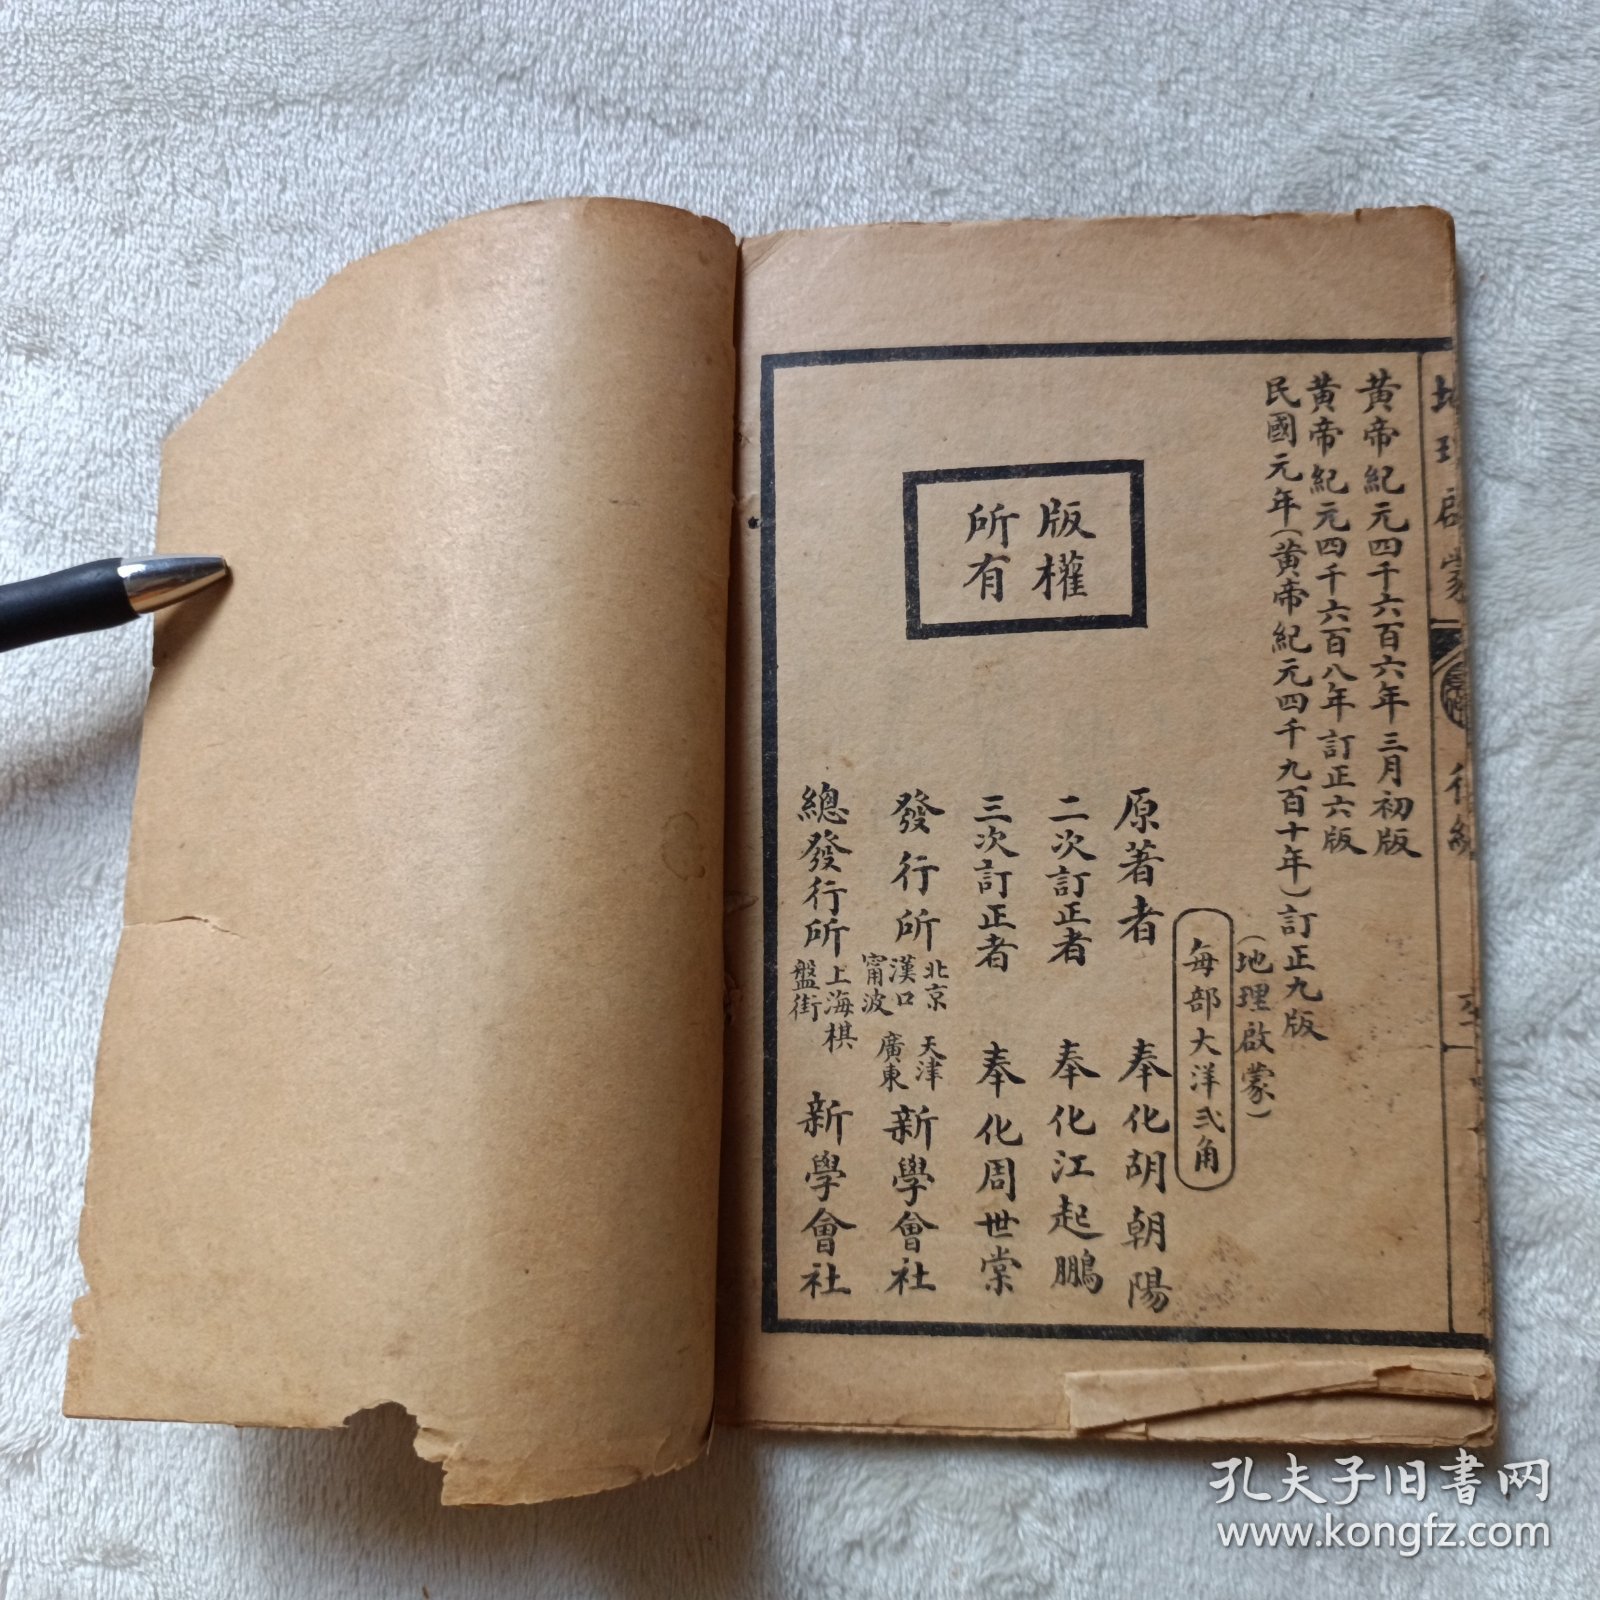 地理啟蒙
黃帝紀元四千六百六年三月初版
黃帝紀元四千六百八年訂正六版
民國元年(黃帝紀元四千九百十年)訂正九版
(地理啟蒙)
每部大洋弍角
版權
所有
原著者 奉化胡朝陽
二次訂正者 奉化江起鵬
三次訂正者 奉化周世棠
發行所 北京 天津 漢口 廣東 甯波 新學會社
總發行所 上海棋盤街 新學會社
孔夫子旧書网
www.kongfz.com